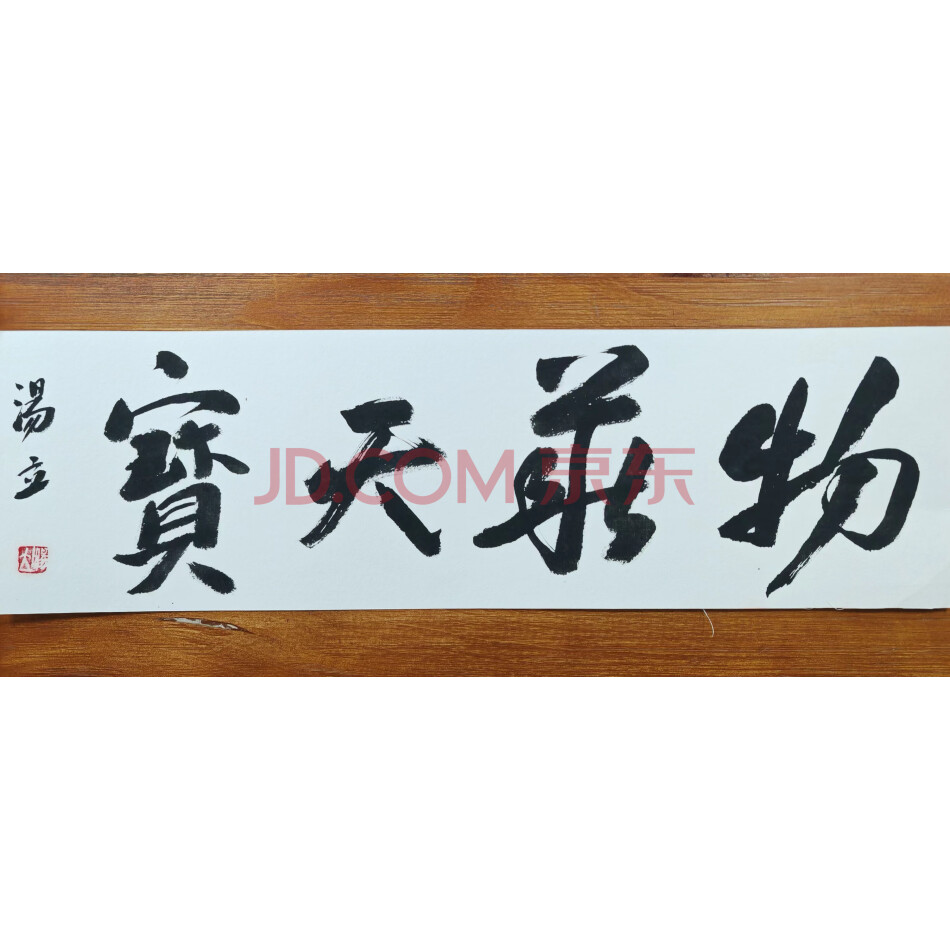 物華天寶
湯立
JD.COM 京东